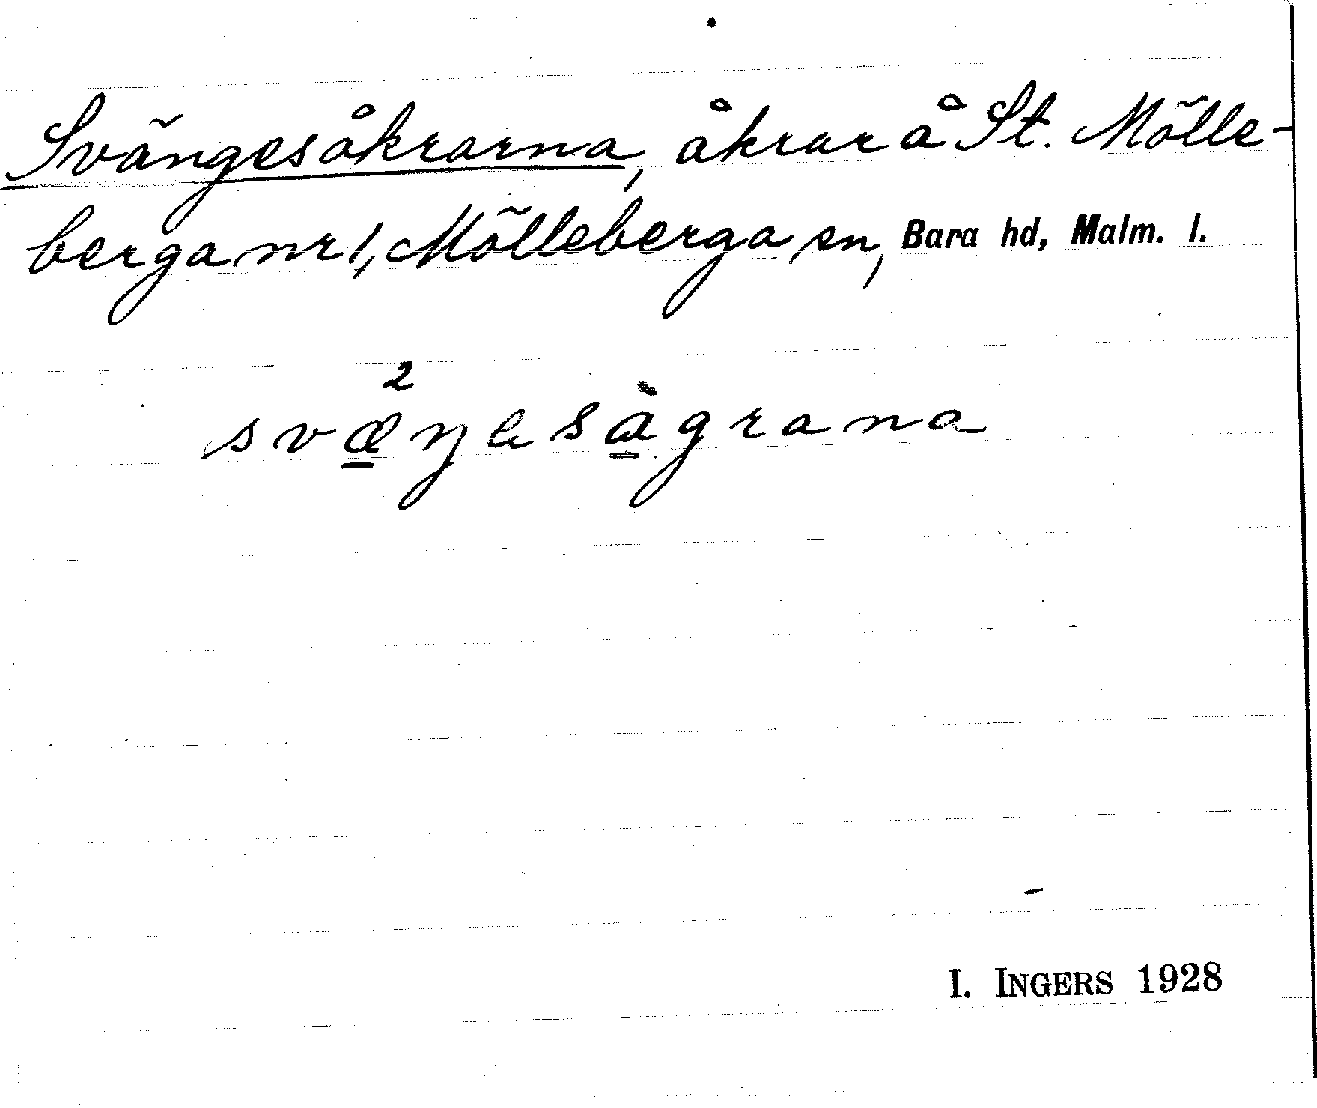 Svängesåkrarna, åkrar å St. Mölle-
berga nr 1, Mölleberga sn, Bara hd, Malm. l.
svæ̱²ŋəså̱̀grana
I. INGERS 1928